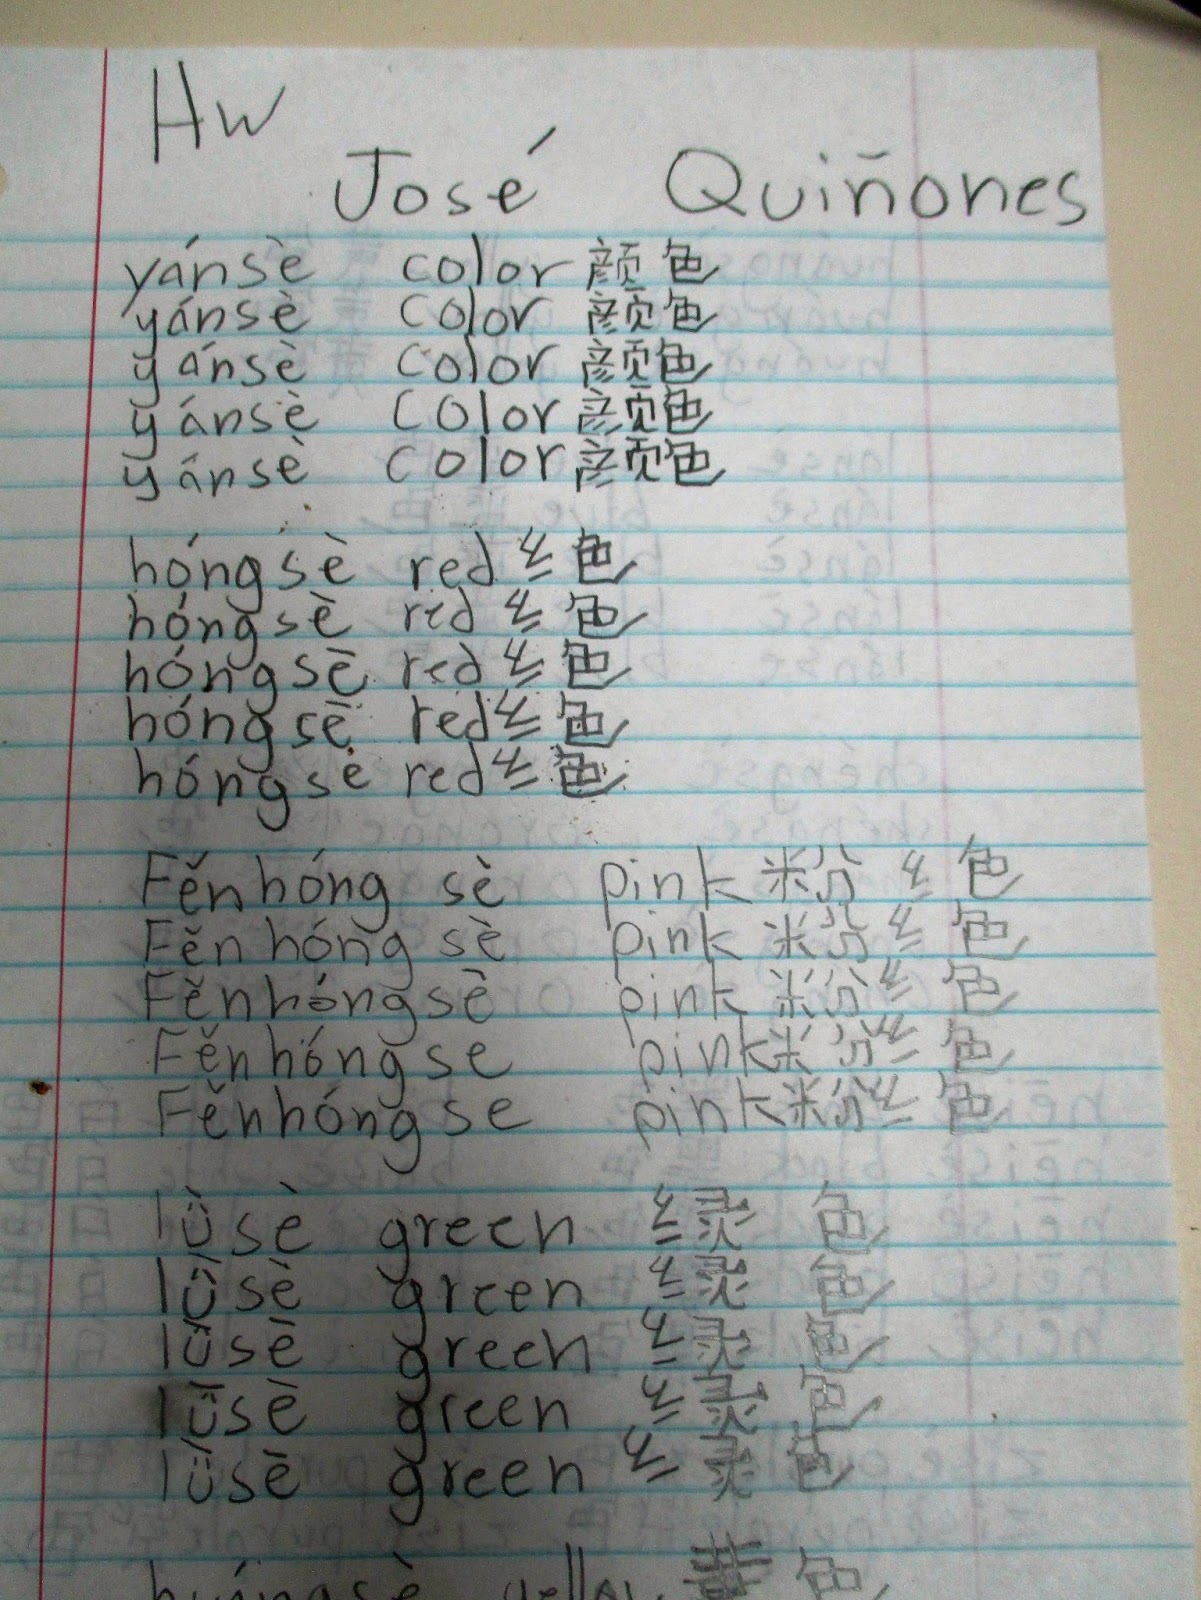 Hw
José Quiñones
yánsè color 颜色
yánsè color 颜色
yánsè color 颜色
yánsè color 颜色
yánsè color 颜色
hóngsè red 纟色
hóngsè red 纟色
hóngsè red 纟色
hóngsè red 纟色
hóngsè red 纟色
Fěnhóng sè pink 粉 纟色
Fěnhóng sè pink 粉 纟色
Fěnhóngsè pink 粉 纟色
Fěnhóngse pink 粉 纟色
Fěnhóngse pink 粉 纟色
lǜsè green 绿 色
lǜsè green 绿 色
lǜsè green 绿 色
lǜsè green 绿 色
lǜsè green 绿 色
huángsè yellow 黄色